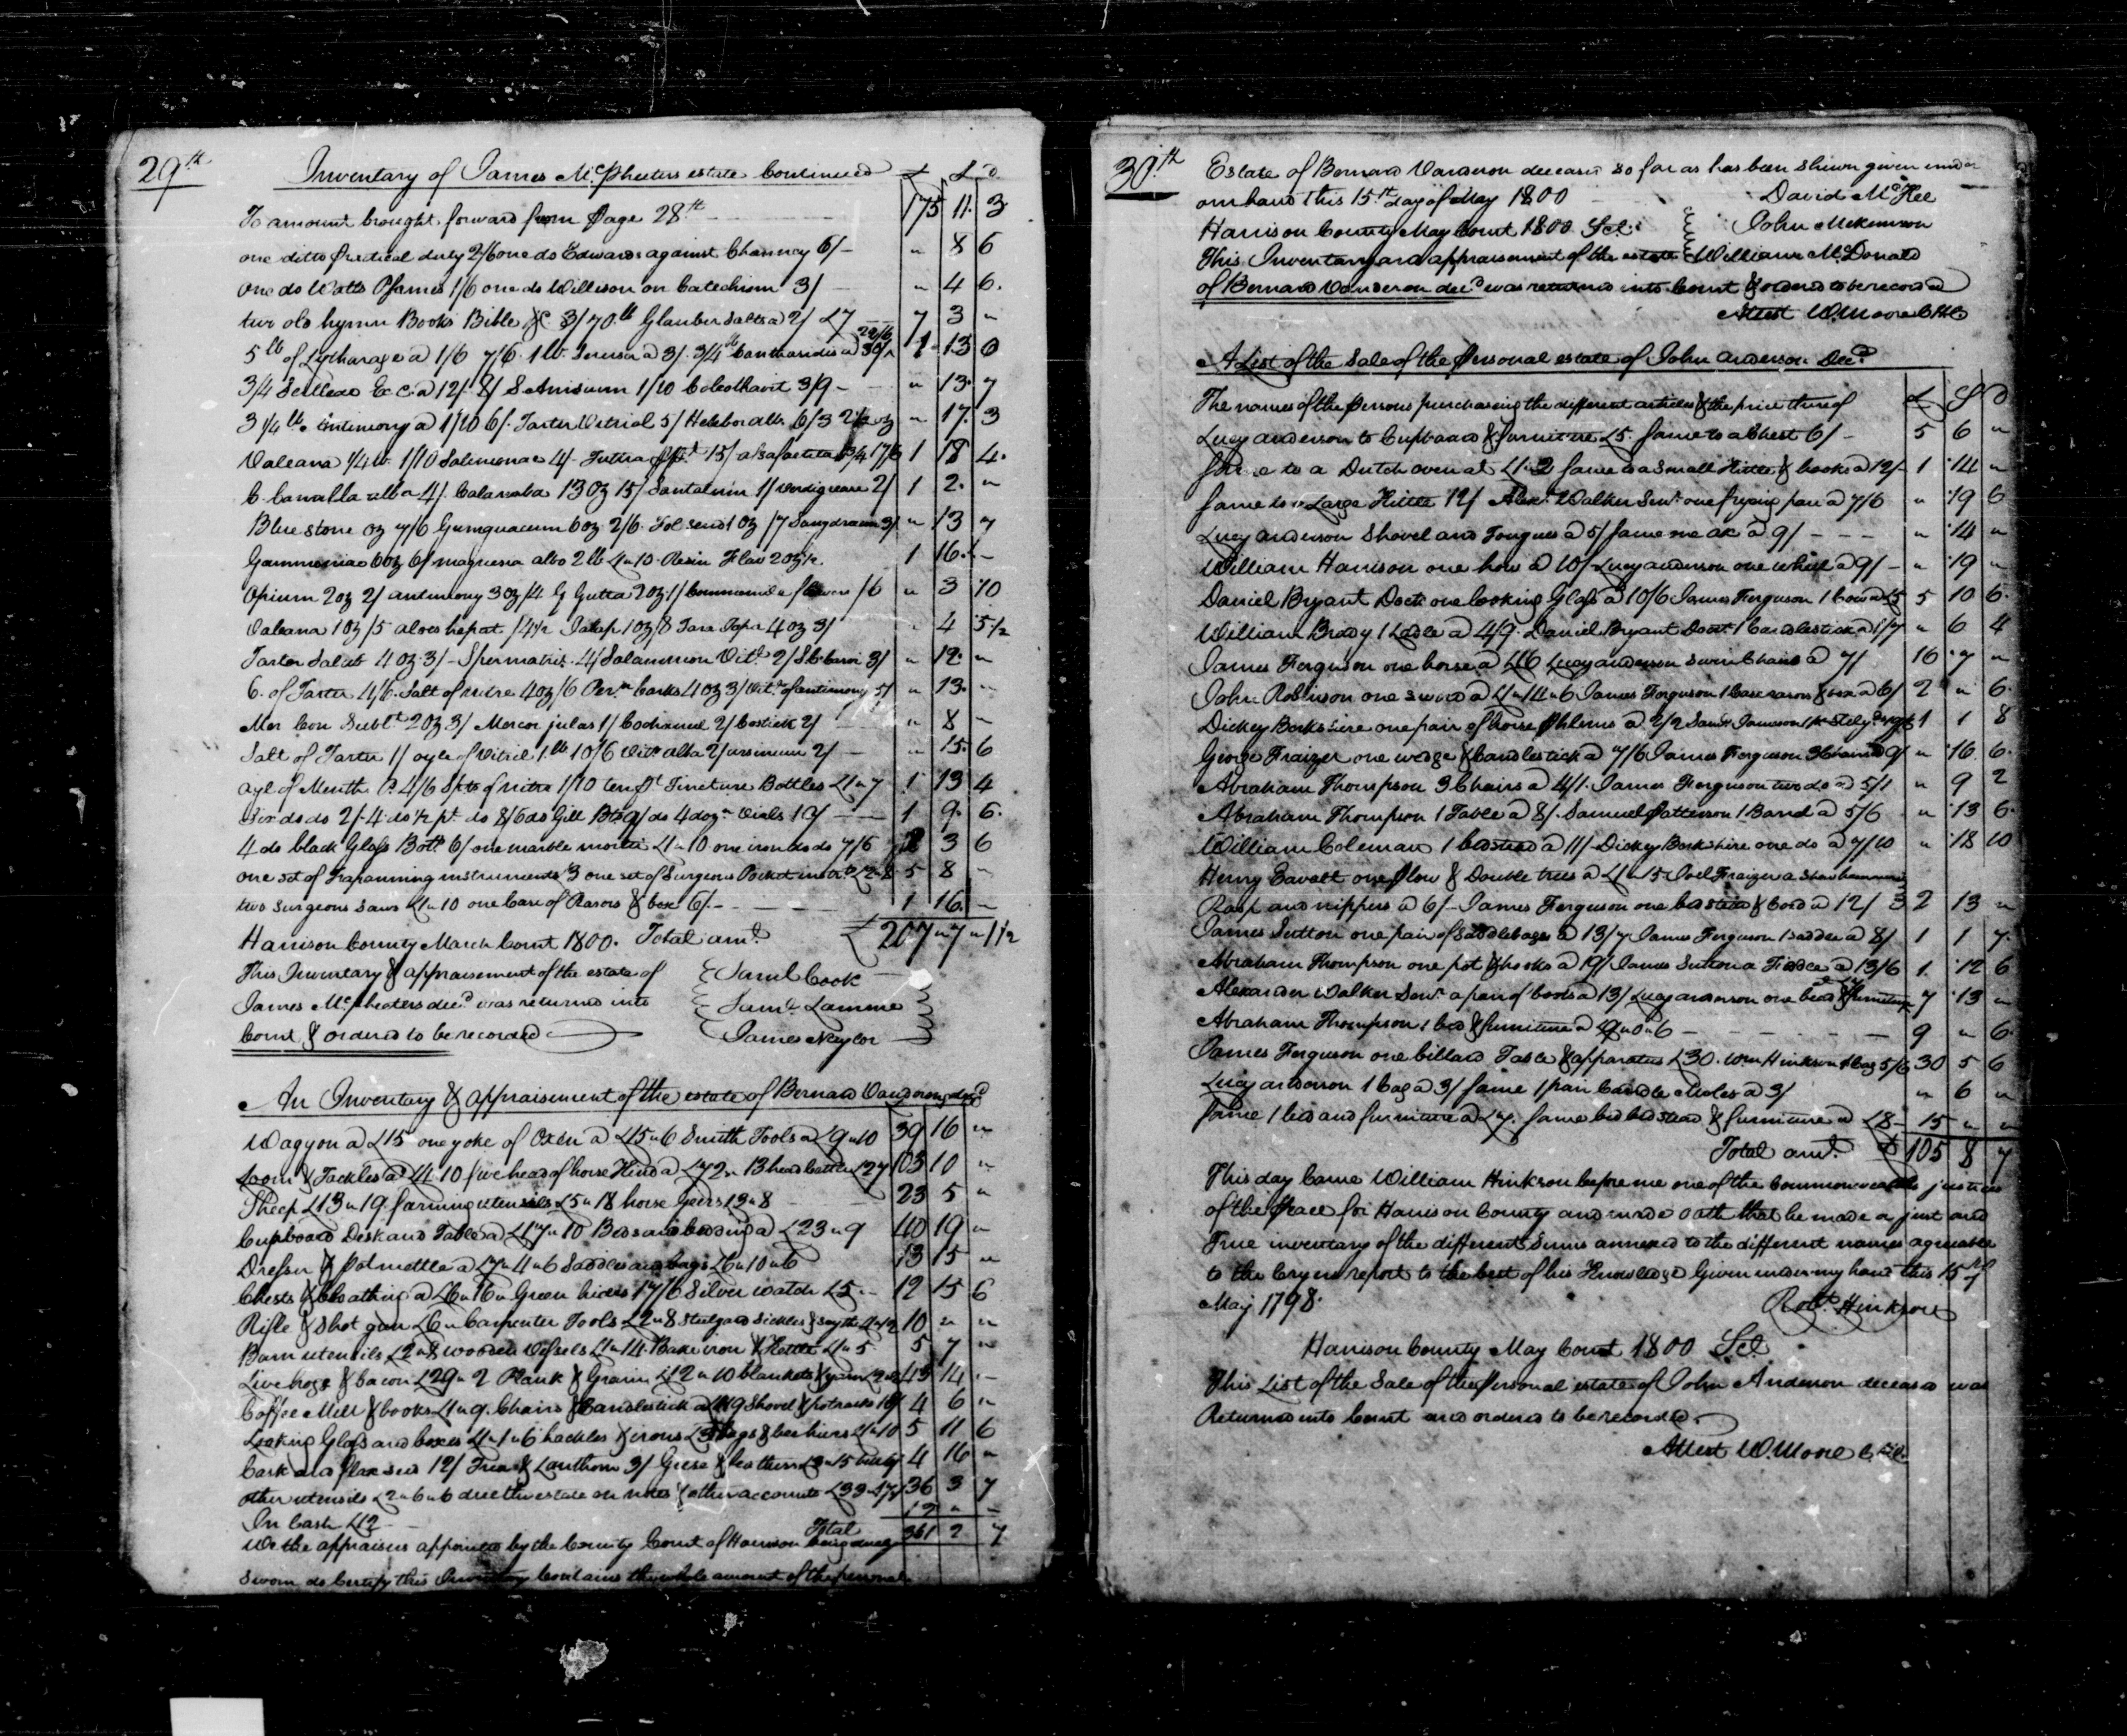 29th
Inventory of James McPheeters estate Continued £ S D
To amount brought forward from Page 28th 175 11 3
one ditto Practical duty 2/6 one do Edwards against Chauncy 6/- " 8 6
one do Watts Psames 1/6 one do Willison on Catechism 3/ " 4 6
two old hymn Books Bible &c 3/ 70 lb Glauber Salts a 2/ £7 7 3 "
5 lb of Lytharage a 1/6 7/6 1 lb a 3/. 3/4 lb Cantharidis a 30/ 22/6 1 13 0
3/4 a 12/ 8/ S Anisuum 1/10 3/9 - " 13 7
3 1/4 lb antimony a 1/10 6/. Tarter Vitriol 5/ Helebor alb. 6/3 2 1/2 oz " 17 3
Valeana 1/4 lb 1/10 4/- Tuttia 15/ asafaetita 3/4 17/6 1 18 4
C. Canalla alba 4/. 13 oz 15/ Santalrum 1/ Verdigrease 2/ 1 2 "
Blue stone oz 7/6 Gumguacum 6 oz 2/6 Fol send 1 oz /7 3/ " 13 7
Gammoniac 6 oz 6/ magnesia alba 2 lb £1"10 Resin Flav 2 oz 1 16 -
Opium 2 oz 2/ antimony 3 oz /4 G Gutta 2 oz 1/ /6 " 3 10
Valeana 1 oz /5 aloes hepat /4 1/2 Jalap 1 oz /8 4 oz 3/ " 4 5 1/2
Tarter Salub 4 oz 3/- 4/ Vitl 2/ 3/ " 12 "
C. of Tarter 4/6. Salt of nitre 4 oz /6 Per.n barks 4 oz 3/ Vit. of antimony 5/ " 13 "
Mer Cor Subl.t 2 oz 3/ 1/ Cochaneel 2/ Costick 2/ " 8 "
Salt of Tarter 1/ oyle of Vitriol 1 lb 10/6 Vit. alba 2/ 2/ - " 15 6
oyl of Menth P. 4/6 Spts of nitre 1/10 ten pt Tincture Bottles £1"7 1 13 4
Six do do 2/. 4 do 1/2 pt do 8/6 do Gill Bts 9/ do 4 doz.n Vials 10/ 1 9 6
4 do black Glass Botts 6/ one marble mortar £1"10 one iron do do 7/6 2 3 6
one set of Trapanning instruments £3 one set of Surgeons Pocket instrts £2"8 5 8 -
two Surgeons Saws £1"10 one Case of Rasors & box 6/- 1 16 -
Harrison County March Court 1800. Total amt. £ 207"7"1 1/2
This Inventory & appraisement of the estate of Saml Cook
James McPheeters decd was returned into Saml. Lamme
Court & ordered to be recorded James Naylor
An Inventory & appraisement of the estate of Bernard Vanderon decd
Waggon a £15 one yoke of Oxen a £15"6 Smith Tools a £9"10 39 16 "
Loom & Tackles a £4 10 five head of horse Kind a £72" 13 head Cattle £27 103 10 "
Sheep £13"19 farming utensils £5"18 horse Geers £3"8 23 5 "
Cupboard Desk and Table a £17"10 Beds and bedding a £23"9 40 19 "
Dresser & Potmettle a £7"4"6 Saddles and bags £6"10"6 13 15 "
Chests & Cloathing a £6"16" Green hides 17/6 Silver watch £5" - 12 15 6
Rifle & Shot gun £6" Carpenter Tools £2"8 Steelyard Sickles & Scythe £1"12 10 " "
Barn utensils £2"8 wooden Vessels £1"14. Bake iron & Kettle £1"5 5 7 "
Live hogs & bacon £29"2 Plank & Grain £12"10 blankets & yarn 43 14 -
Coffee Mill & books £1"9. Chairs & Candlestick a Shovel & potracks 18/ 4 6 "
Looking Glass and boxes £1"1"6 hackles & irons £3 & beehives £1"10 5 11 6
Cask and flax seed 12/ & Lanthorn 3/ Geese & feathers £3"15 4 16 "
other utensils £2"6"6 due the estate on notes & other accounts £33"17 36 3 7
In Cash £12 12 " -
Total 361 2 7
We the appraisers appointed by the County Court of Harrison being duly
Sworn do Certify this Inventory Contains the whole amount of the personal
30th
Estate of Bernard Vanderon deceasd so far as has been shewn given under
our hand this 15th day of May 1800 David McKee
Harrison County May Court 1800 Sct. John McKinnson
This Inventory and appraisement of the estate William McDonald
of Bernard Vanderon decd was returned into Court & ordered to be recorded
Attest W. Moore C H C
A List of the Sale of the Personal estate of John Anderson Decd.
The names of the Persons purchasing the different articles & the price thereof £ S D
Lucy Anderson to Cupboard & furniture £5. Same to a Chest 6/- 5 6 "
Same to a Dutch oven at £1"2 Same to a Small Kittle & hooks a 12/- 1 14 "
Same to a Large Kittle 12/ Alexr. Walker Senr. one frying pan a 7/6 " 19 6
Lucy Anderson Shovel and Tongues a 5/ Same one ax a 9/ - - - " 14 "
William Harrison one how a 10/ Lucy Anderson one Wheel a 9/ - " 19 "
Daniel Bryant Doctr one looking Glass a 10/6 James Ferguson 1 Cow a £5 5 10 6
William Brady 1 Ladle a 4/9. Daniel Bryant Doctr 1 Candlestick a 1/7 " 6 4
James Ferguson one horse a £16 Lucy Anderson Seven Chairs a 7/ 16 7 "
John Robinson one Sword a £1"14"6 James Ferguson 1 Case rasors & box a 6/ 2 " 6
Dickey Berkshire one pair of horse Phlems a 2/2 Saml. Jameson 1 pr Stelyds 19/6 1 1 8
George Fraizer one wedge & Candlestick a 7/6 James Ferguson 3 Chairs a 9/ " 16 6
Abraham Thompson 3 Chairs a 4/1. James Ferguson two do a 5/1 " 9 2
Abraham Thompson 1 Table a 8/. Samuel Patterson 1 Barrel a 5/6 " 13 6
William Coleman 1 bedstead a 11/- Dickey Berkshire one do a 7/10 " 18 10
Henry Eavalt one Plow & Double trees a £1"15 Joel Fraizer a Shoe hammer
Rasp and nippers a 6/- James Ferguson one bedstead & Cord a 12/ 2 13 "
James Sutton one pair of Saddlebags a 13/7 James Ferguson 1 saddle a 8/ 1 1 7
Abraham Thompson one pot & hooks a 19/ James Sutton a Fiddle a 13/6 1 12 6
Alexander Walker Senr. a pair of boots a 13/ Lucy Anderson one bed & furniture £7 7 13 "
Abraham Thompson 1 bed & furniture a £9"0"6 - - - - 9 " 6
James Ferguson one billard Table & apparatus £30. Wm Hinkson 1 bag 5/6 30 5 6
Lucy Anderson 1 bag a 3/ Same 1 pair Candle Moles a 3/ " 6 "
Same 1 bed and furniture a £7. Same bed bedstead & furniture a £8 - 15 " "
Total amt. £ 105 8 7
This day Came William Hinkson before me one of the Commonwealths justices
of the Peace for Harrison County and made oath that he made a just and
True inventory of the different Sums annexed to the different names agreeable
to the Cryers report to the best of his Knowledge Given under my hand this 15th of
May 1798. Robt. Hinkson
Harrison County May Court 1800 Sct.
This List of the Sale of the Personal estate of John Anderson deceased was
Returned into Court and ordered to be recorded
Attest W. Moore C H C